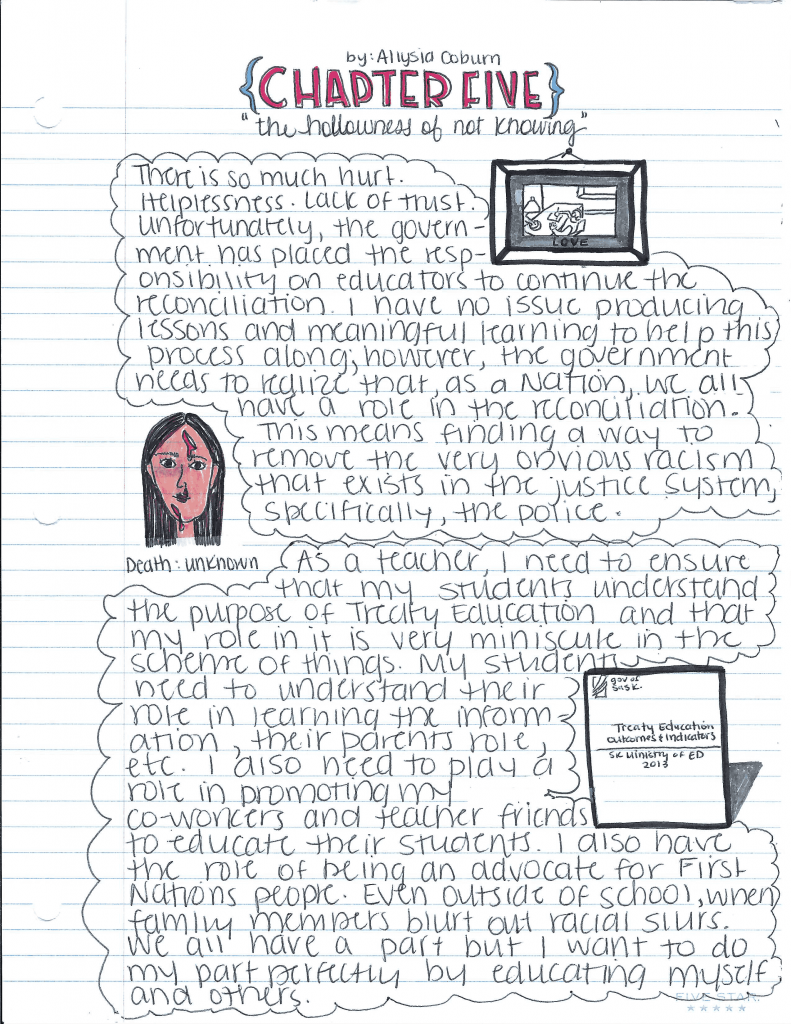 by: Allysia Coburn
{CHAPTER FIVE}
"the hollowness of not knowing"
There is so much hurt.
Helplessness. Lack of trust.
Unfortunately, the govern-
ment has placed the resp-
onsibility on educators to continue the
reconciliation. I have no issue producing
lessons and meaningful learning to help this
process along; however, the government
needs to realize that, as a Nation, we all
have a role in the reconciliation.
This means finding a way to
remove the very obvious racism
that exists in the justice system,
specifically, the police.
LOVE
Death: unknown
As a teacher, I need to ensure
that my students understand
the purpose of Treaty Education and that
my role in it is very miniscule in the
scheme of things. My students
need to understand their
role in learning the inform-
ation, their parents role,
etc. I also need to play a
role in promoting my
co-workers and teacher friends
to educate their students. I also have
the role of being an advocate for First
Nations people. Even outside of school, when
family members blurt out racial slurs.
We all have a part but I want to do
my part perfectly by educating myself
and others.
gov of
Sask.
Treaty Education
Outcomes & Indicators
SK Ministry of ED
2013
FIVE STAR